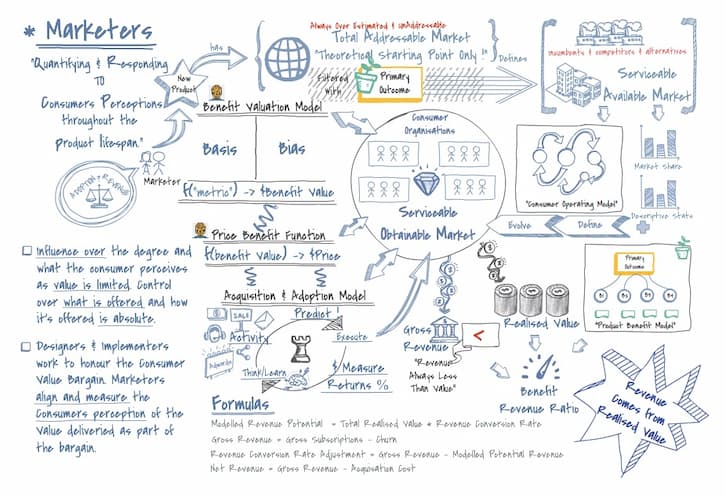 * Marketers
"Quantifying & Responding
TO
Consumers Perceptions
throughout the
product lifespan."
has
New
Product
Always Over Estimated & unAddressable
Total Addressable Market
"Theoretical Starting Point Only !"
Defines
Filtered
with
Primary
Outcome
incumbents & competitors & alternatives
Serviceable
Available Market
Benefit Valuation Model
Basis
Bias
f("metric") -> $Benefit Value
Marketer
ADOPTION + REVENUE
Consumer
Organisations
Serviceable
Obtainable Market
"Consumer Operating Model"
Market Share
Descriptive Stats
Evolve
Define
Price Benefit Function
f(benefit value) -> $Price
Acquisition & Adoption Model
Predict !
SALE
Activity
Execute
Adwords
Think/Learn
& Measure
Returns %
Influence over the degree and
what the consumer perceives
as value is limited. Control
over what is offered and how
it's offered is absolute.
Designers & Implementers
work to honour the Consumer
Value Bargain. Marketers
align and measure the
Consumers perception of the
Value deliveried as part of
the bargain.
Gross
Revenue
<
Realised Value
"Revenue
Always Less
Than Value"
Benefit
Revenue Ratio
Primary
Outcome
"Product Benefit Model"
Revenue
Comes from
Realised Value
Formulas
Modelled Revenue Potential = Total Realised Value * Revenue Conversion Rate
Gross Revenue = Gross Subscriptions - Churn
Revenue Conversion Rate Adjustment = Gross Revenue - Modelled Potential Revenue
Net Revenue = Gross Revenue - Acquisation Cost